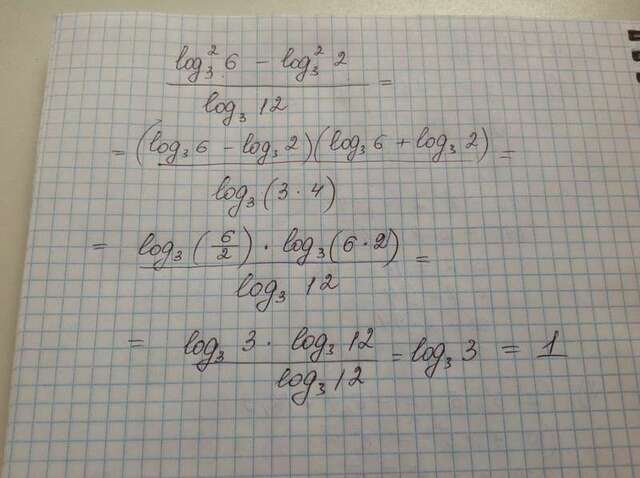 log₃² 6 − log₃² 2 / log₃ 12 =
= (log₃ 6 − log₃ 2)(log₃ 6 + log₃ 2) / log₃ (3 · 4) =
= log₃ (6/2) · log₃ (6 · 2) / log₃ 12 =
= log₃ 3 · log₃ 12 / log₃ 12 = log₃ 3 = 1